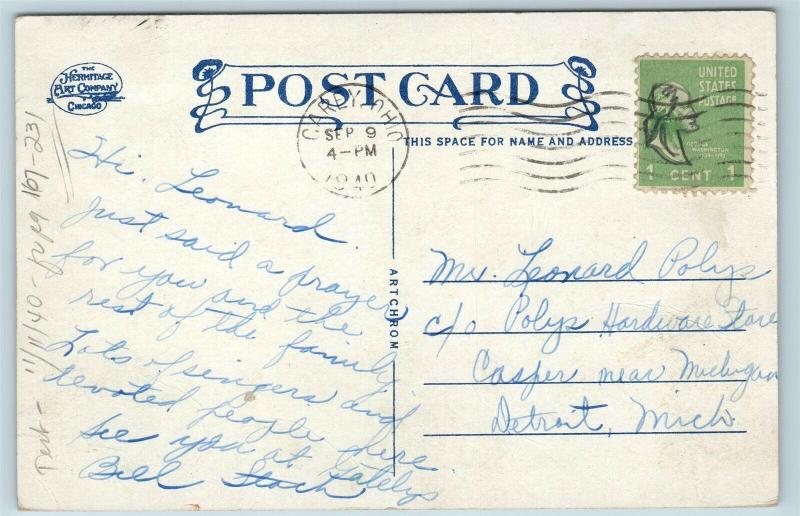 THE
HERMITAGE
ART COMPANY
CHICAGO
POST CARD
CAREY, OHIO
SEP 9
4-PM
1940
UNITED
STATES
POSTAGE
GEORGE
WASHINGTON
1 CENT 1
THIS SPACE FOR NAME AND ADDRESS
ARTCHROM
Hi, Leonard.
Just said a prayer
for you and the
rest of the family.
Lots of singers and
devoted people here.
See you at Gatelys
Bill
Mr. Leonard Polys
c/o Polys Hardware Store
Casper near Michigan
Detroit, Mich
11/11/40 - 167-231